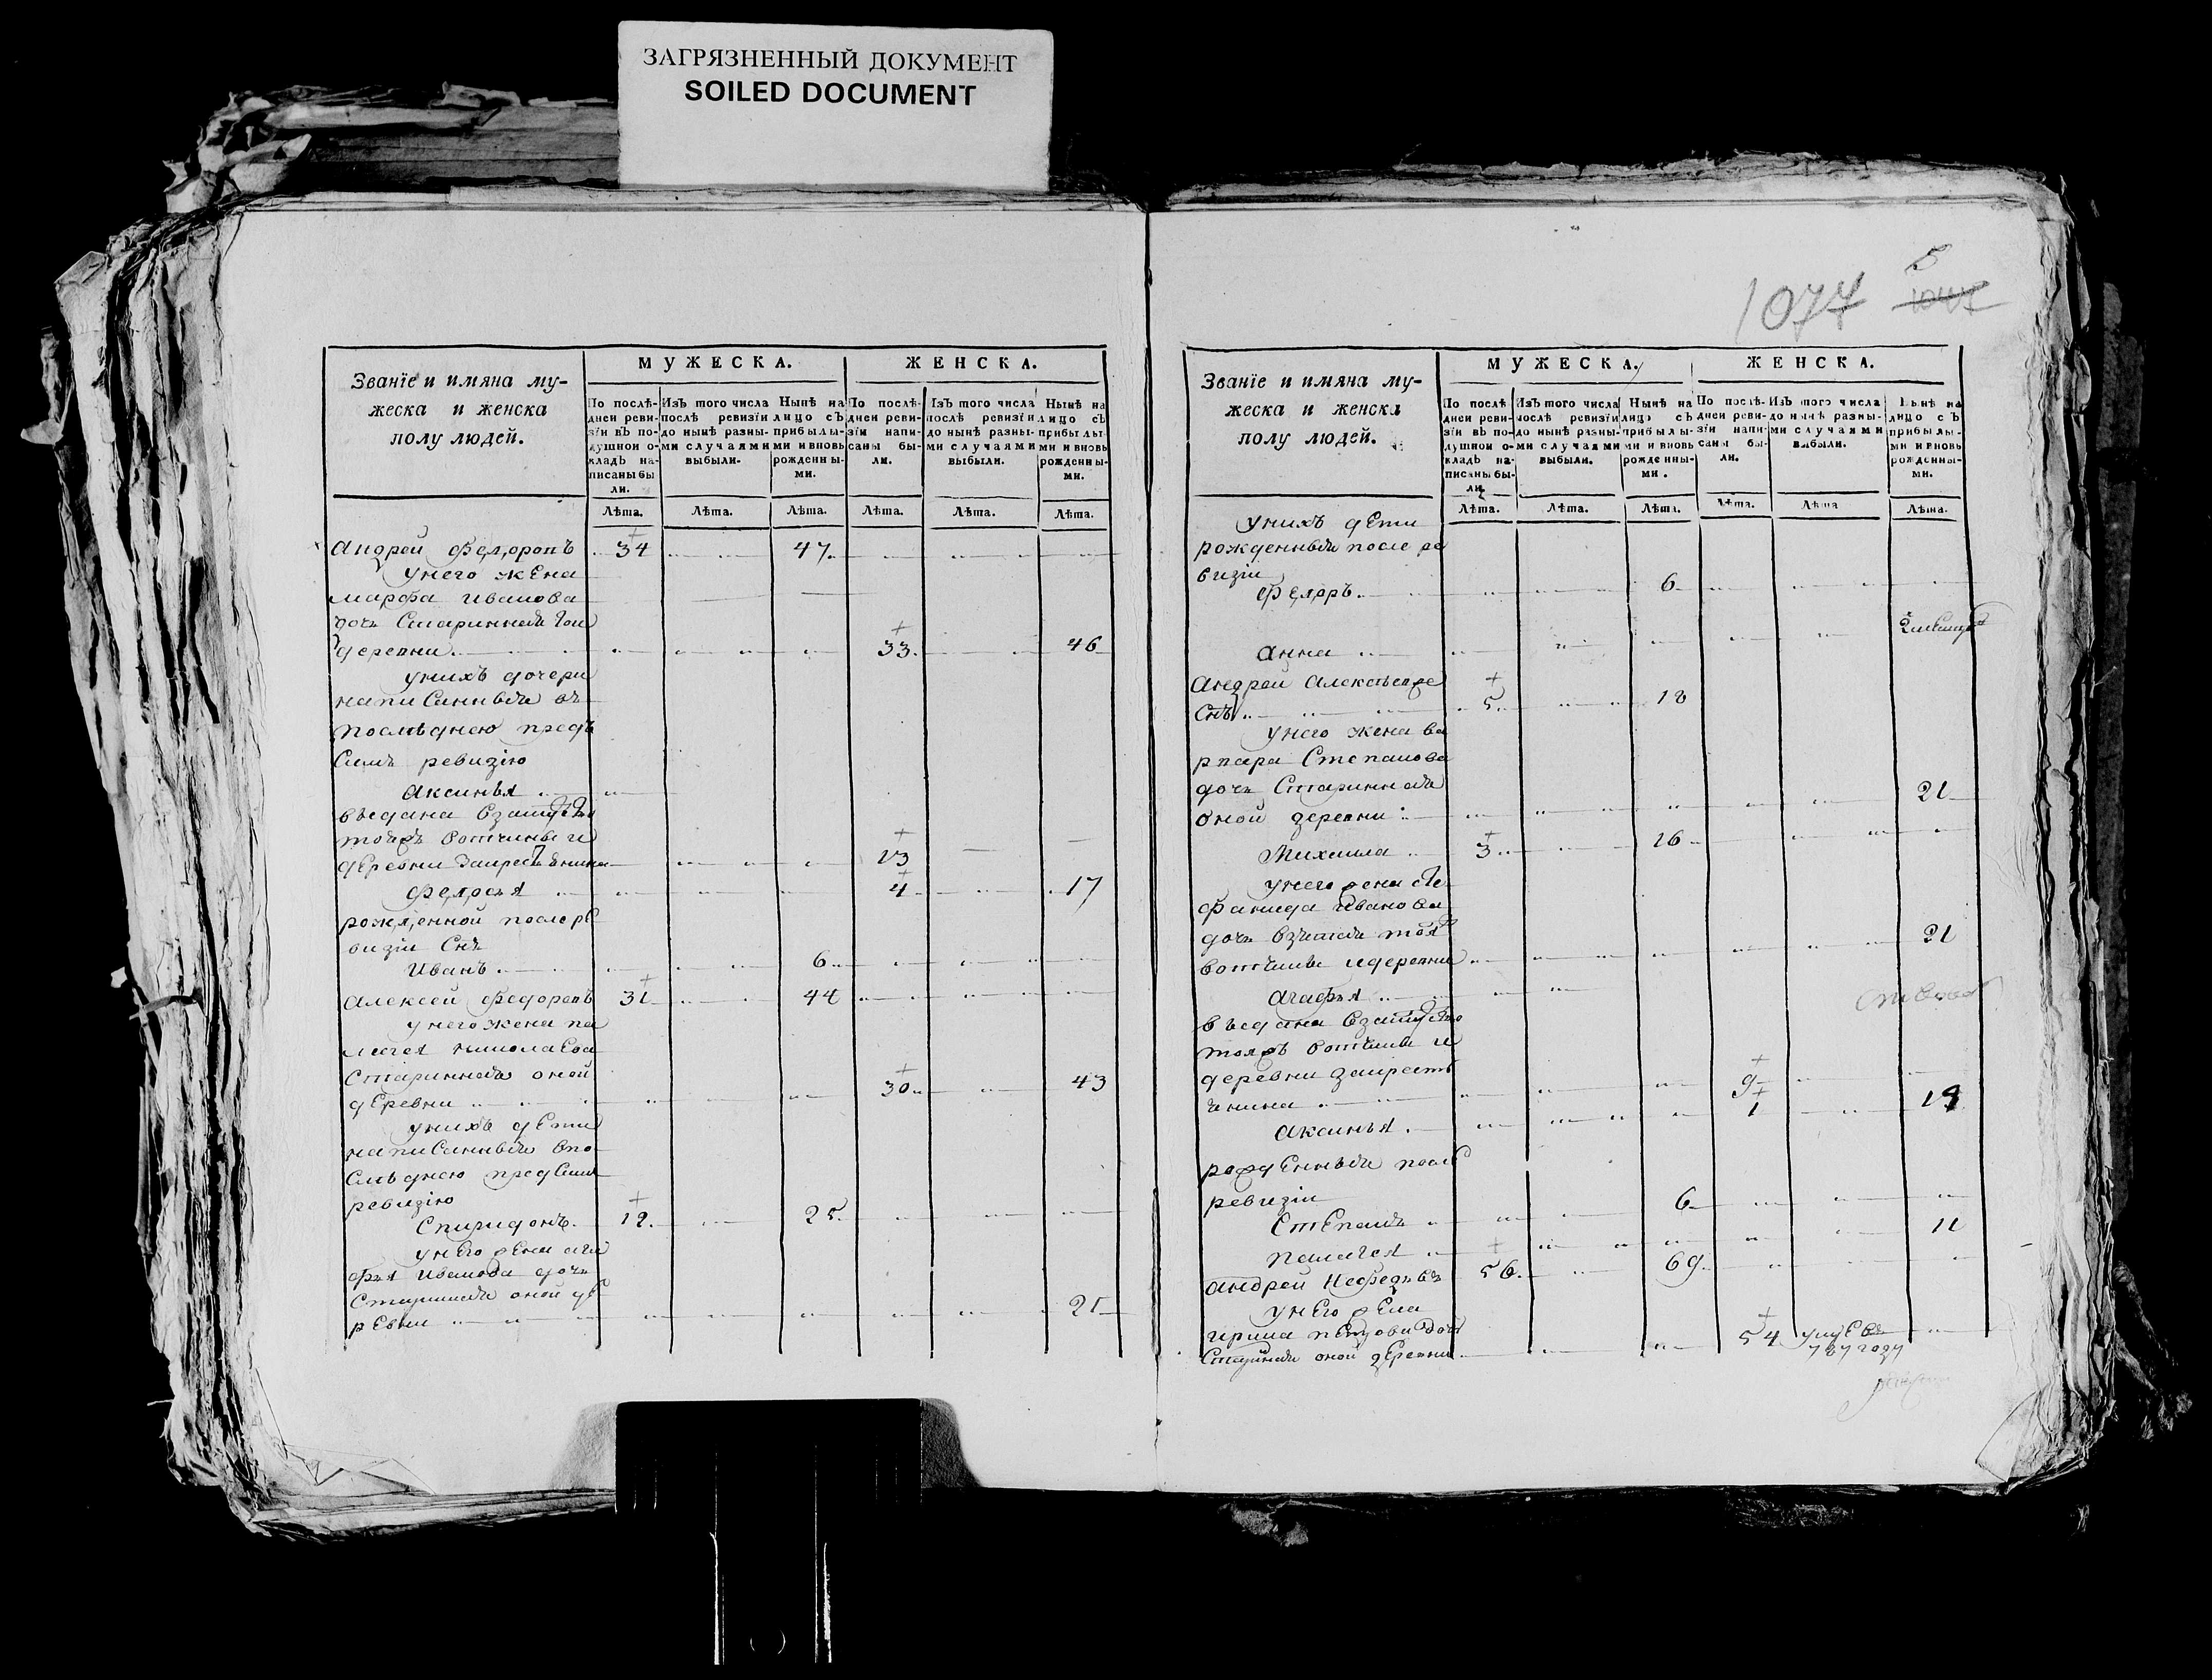 ЗАГРЯЗНЕННЫЙ ДОКУМЕНТ
SOILED DOCUMENT
1077
Званїе и имяна му-
жеска и женска
полу людей.
МУЖЕСКА.
ЖЕНСКА.
По послѣ-
дней реви-
зїи въ по-
душной о-
кладъ на-
писаны бы
ли.
Изъ того числа
послѣ ревизїи
до нынѣ разны-
ми случаями
выбыли.
Нынѣ на
лицо съ
прибылы-
ми и вновь
рожденны-
ми.
По послѣ-
дней реви-
зїи напи-
саны бы-
ли.
Изъ того числа
послѣ ревизїи
до нынѣ разны-
ми случаями
выбыли.
Нынѣ на
лицо съ
прибылы-
ми и вновь
рожденны-
ми.
Лѣта. Лѣта. Лѣта. Лѣта. Лѣта. Лѣта.
Андрей Федоровъ 34 47
у него жена
марфа иванова
дочь Старинная
деревни 33 46
у нихъ дочери
написанныя въ
последнею предъ
Симъ ревизїю
аксинья
выдана взамужство
вотчины и
деревни 13
федосья 4 17
рожденной после ре
визїи Снъ
Иванъ 6
алексей федоровъ 31 44
у него жена па
лагея николаева
Старинная оной
деревни 30 43
у нихъ дети
написанныя впо
следнею предсимъ
ревизїю
Спиридонъ 12 25
у него жена ага
фья иванова дочь
Старинная оной де
ревни 21
Званїе и имяна му-
жеска и женска
полу людей.
МУЖЕСКА.
ЖЕНСКА.
По послѣ-
дней реви-
зїи въ по-
душной о-
кладъ на-
писаны бы-
ли.
Изъ того числа
послѣ ревизїи
до нынѣ разны-
ми случаями
выбыли.
Нынѣ на
лицо съ
прибылы-
ми и вновь
рожденны-
ми.
По послѣ-
дней реви-
зїи напи-
саны бы-
ли.
Изъ того числа
до нынѣ разны-
ми случаями
выбыли.
Нынѣ на
лицо съ
прибылы-
ми и вновь
рожденны-
ми.
Лѣта. Лѣта. Лѣта. Лѣта. Лѣта. Лѣта.
у нихъ дети
рожденныя после ре
визїи
федоръ 6
анна
Андрей Алексеевъ
Снъ 5 18
у него жена ва
рвара Степанова
дочь Старинная
оной деревни 21
Михаила 3 16
у него жена сте
фанида Иванова
дочь взятая тоя
вотчины и деревни 21
агафья
выдана взамужство
вотчины и
деревни
9
аксинья 1
рожденныя после
ревизїи
Степанъ 6
пелагея 11
андрей Нефедьевъ 56 69
у него жена
ирина петрова дочь
Старинная оной деревни 54 умре въ
787 году